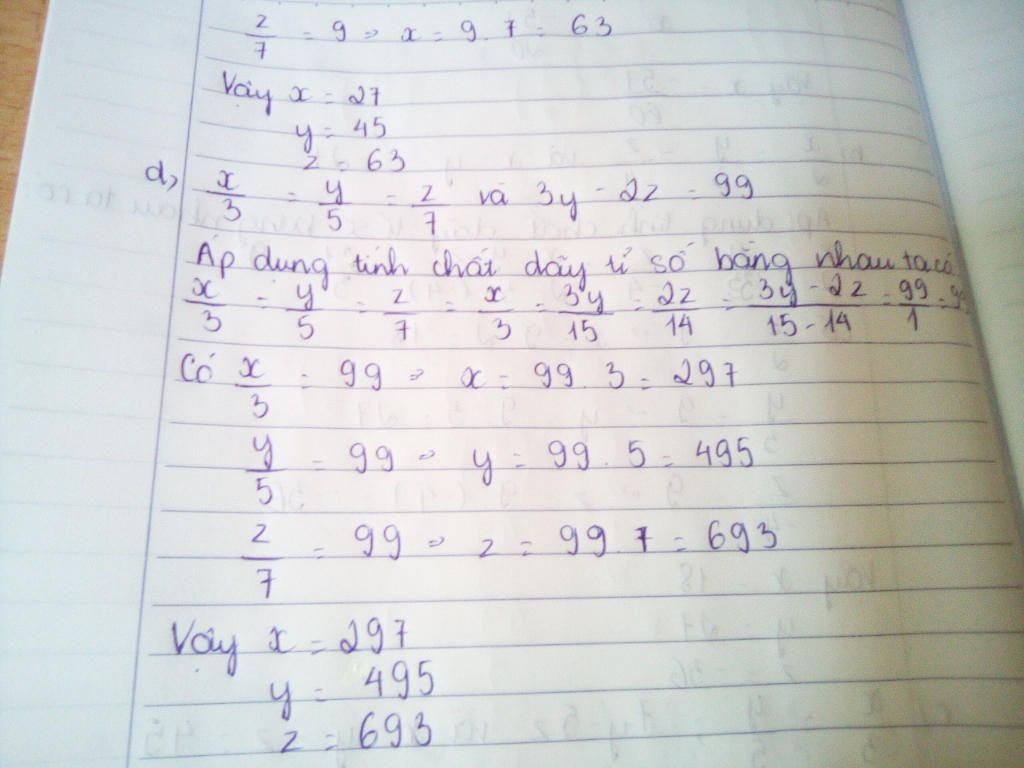 z/7 = 9 => x = 9.7 = 63
Vây x = 27
y = 45
z = 63
d, x/3 = y/5 = z/7 và 3y - 2z = 99
Áp dung tính chất dãy tỉ số bằng nhau ta có
x/3 = y/5 = z/7 = x/3 = 3y/15 = 2z/14 = 3y - 2z/15 - 14 = 99/1 = 99
Có x/3 = 99 => x = 99.3 = 297
y/5 = 99 => y = 99.5 = 495
z/7 = 99 => z = 99.7 = 693
Vây x = 297
y = 495
z = 693